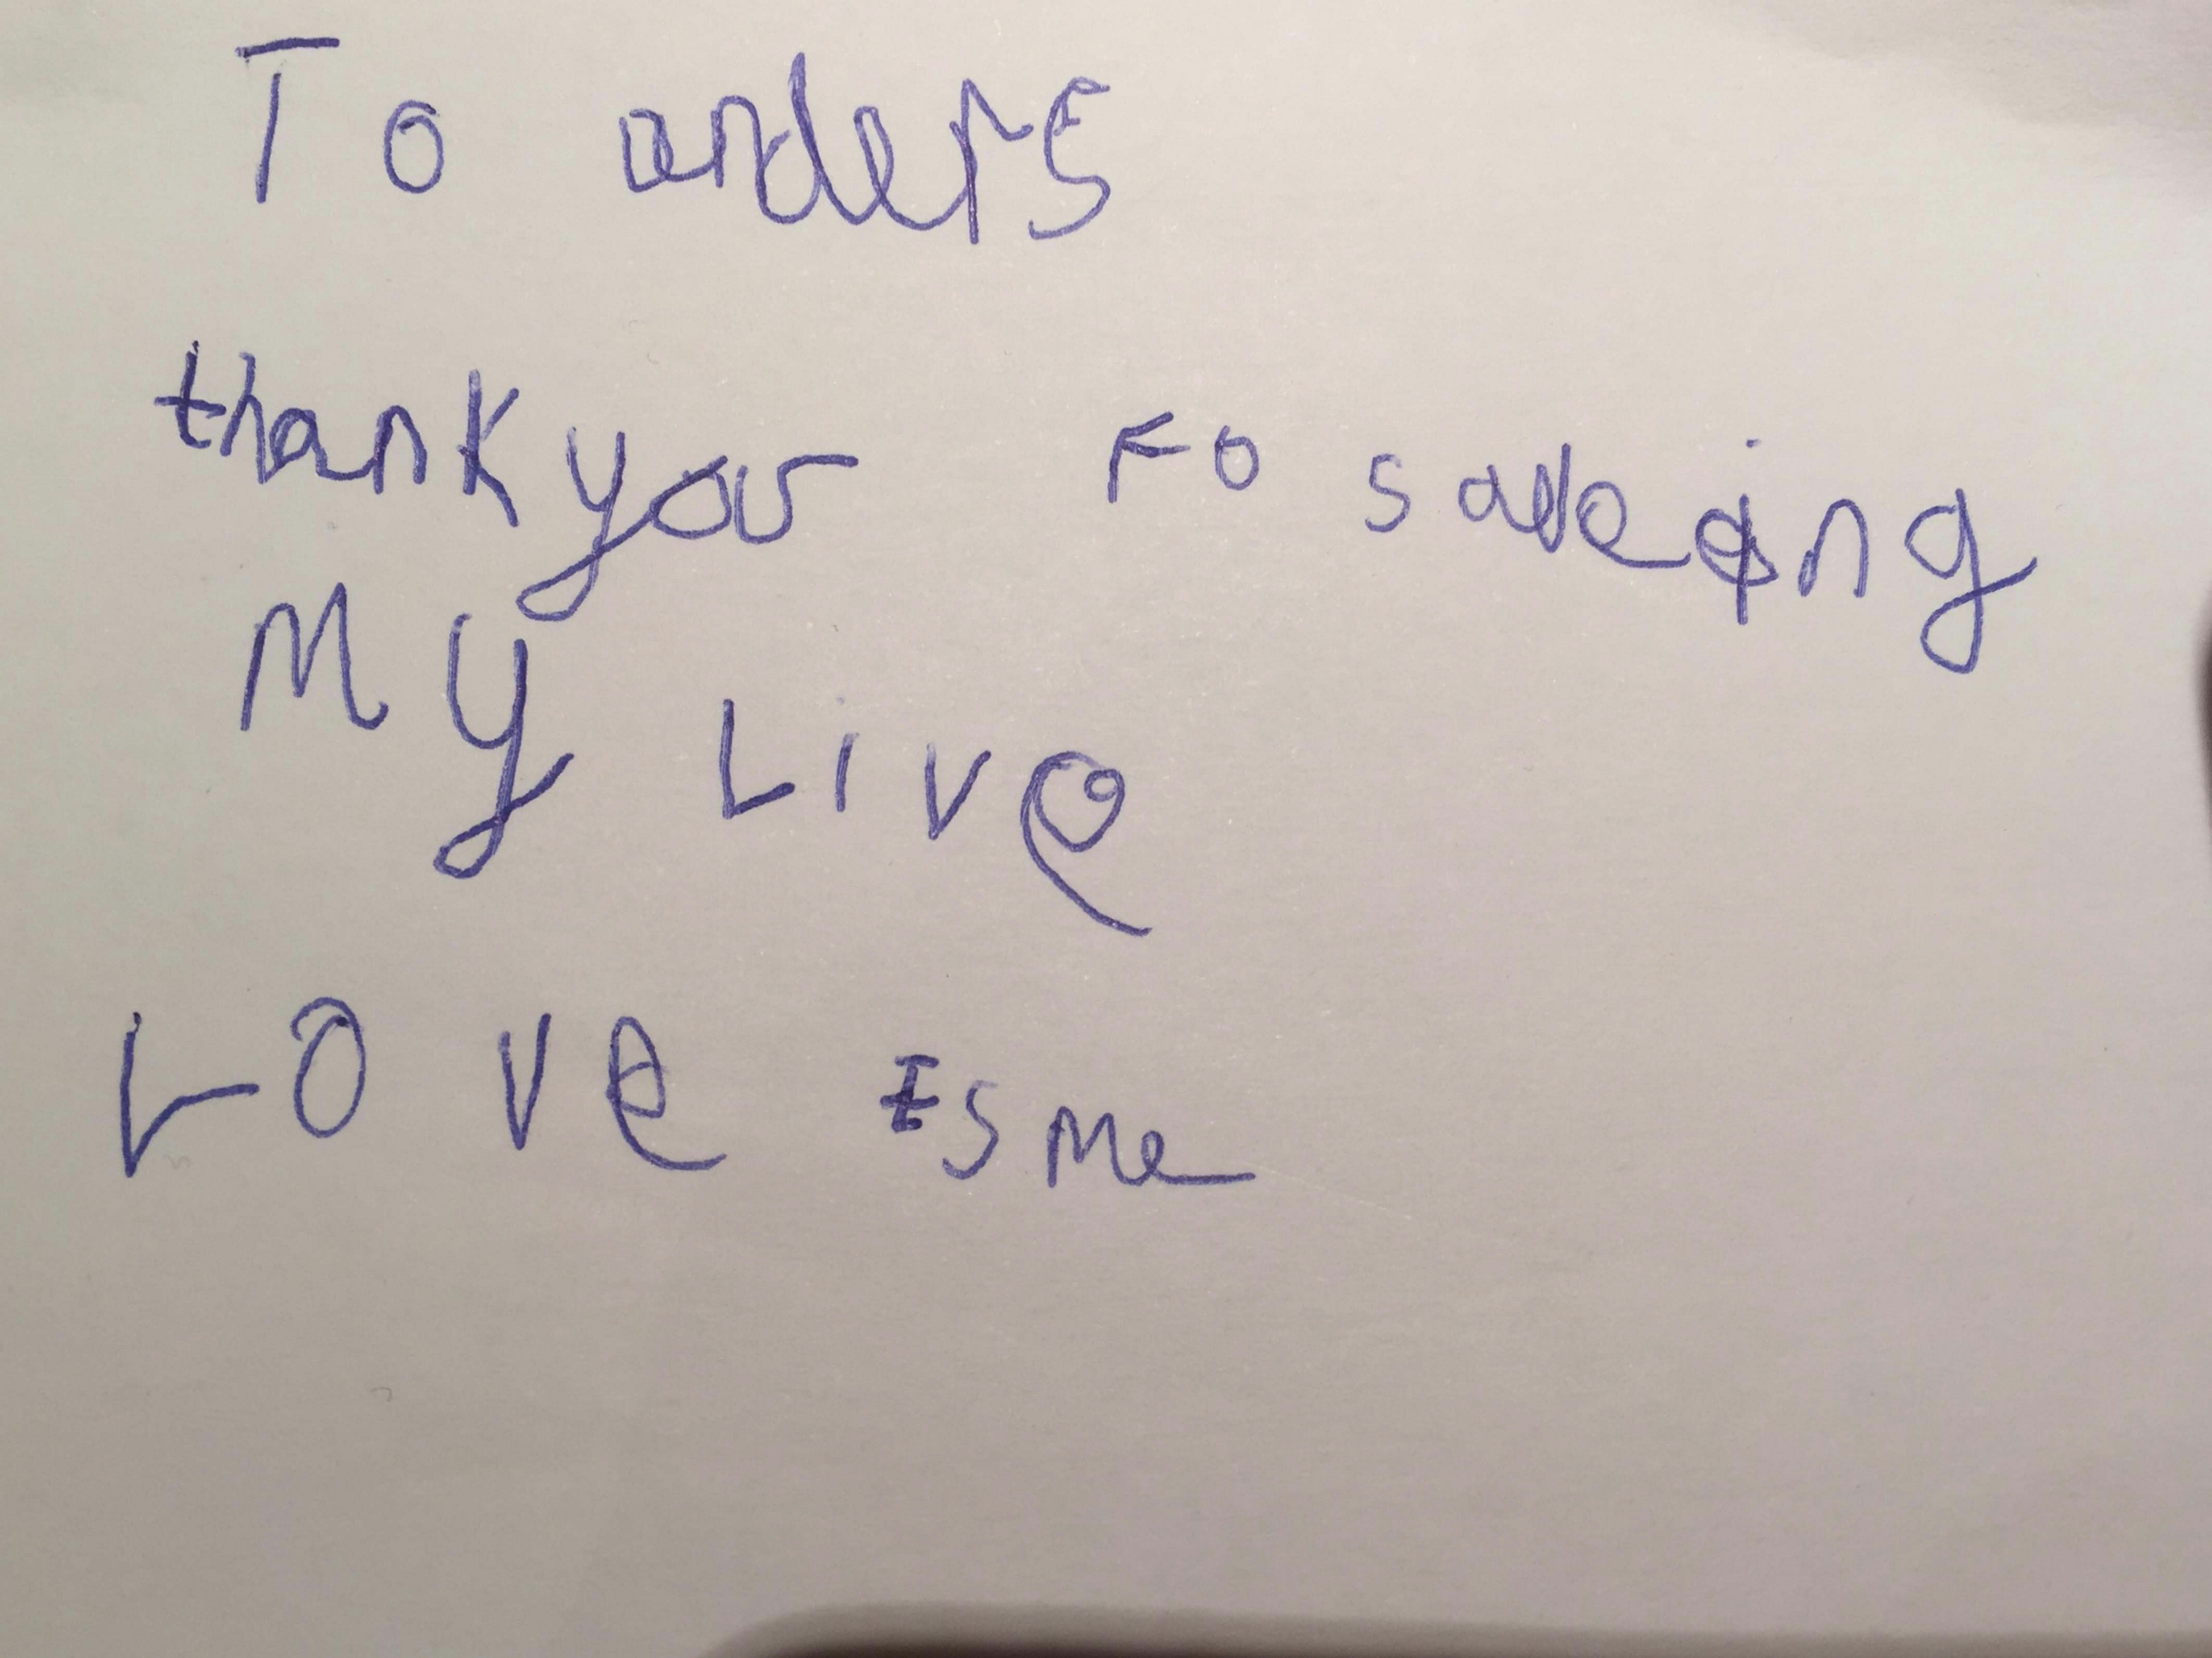 To anders
thank you Fo saveing
My Live
LOve Esme